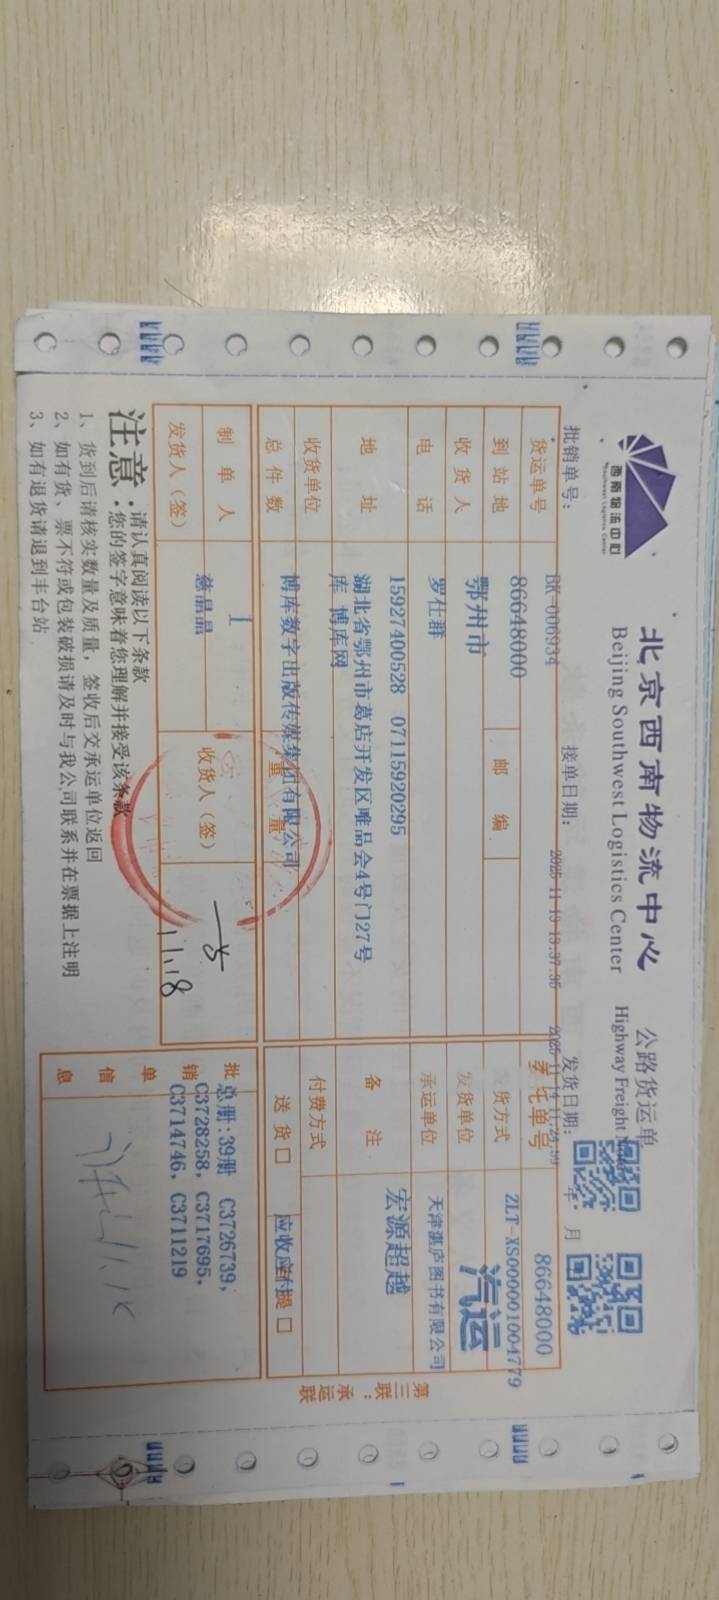 西南物流中心
Southwest Logistics Center
北京西南物流中心
Beijing Southwest Logistics Center
公路货运单
Highway Freight
批销单号：
BK-000934
接单日期：
2025-11-13 13:37:35
发货日期：
年 月
货运单号
86648000
委托单号
86648000
ZLT-XS000001004779
到站地
鄂州市
邮编
发货方式
汽运
收货人
罗仕群
发货单位
天津湛庐图书有限公司
电话
15927400528 07115920295
承运单位
宏源超越
地址
湖北省鄂州市葛店开发区唯品会4号门27号
库 博库网
备注
收货单位
博库数字出版传媒集团有限公司
付费方式
总件数
1
重量
送货口
应收应付
提口
制单人
慈晶晶
收货人（签）
11.18
发货人（签）
批销单信息
总册:39册 C3726739,
C3728258, C3717695,
C3714746, C3711219
第三联：承运联
注意：
请认真阅读以下条款
您的签字意味着您理解并接受该条款
1、货到后请核实数量及质量，签收后交承运单位返回
2、如有货、票不符或包装破损请及时与我公司联系并在票据上注明
3、如有退货请退到丰台站